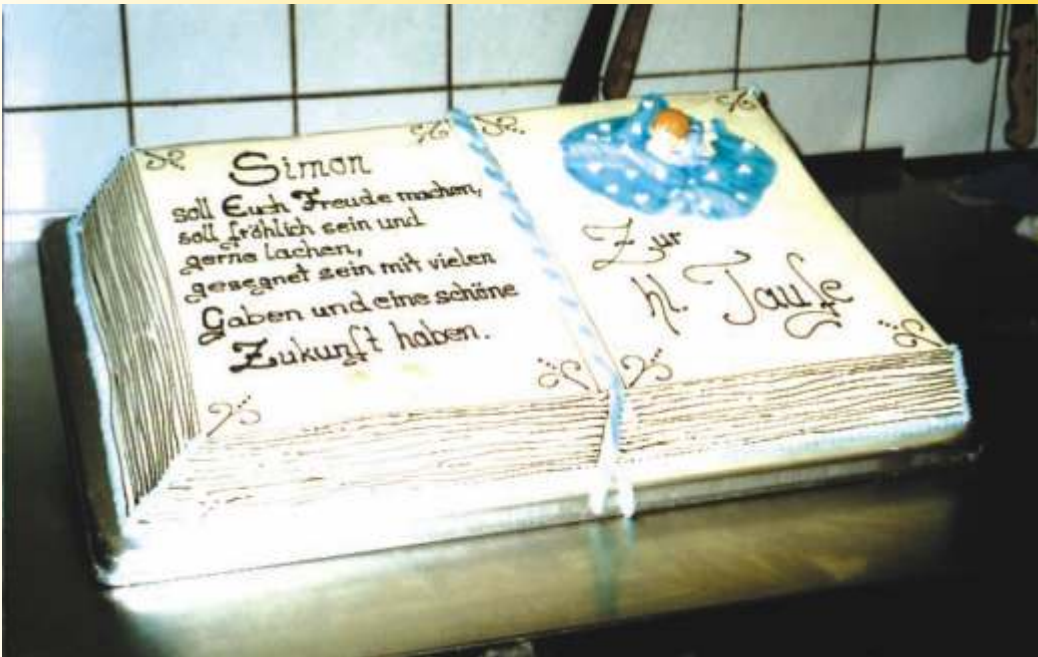 Simon
soll Euch Freude machen,
soll fröhlich sein und
gerne lachen,
gesegnet sein mit vielen
Gaben und eine schöne
Zukunft haben.
Zur
hl. Taufe